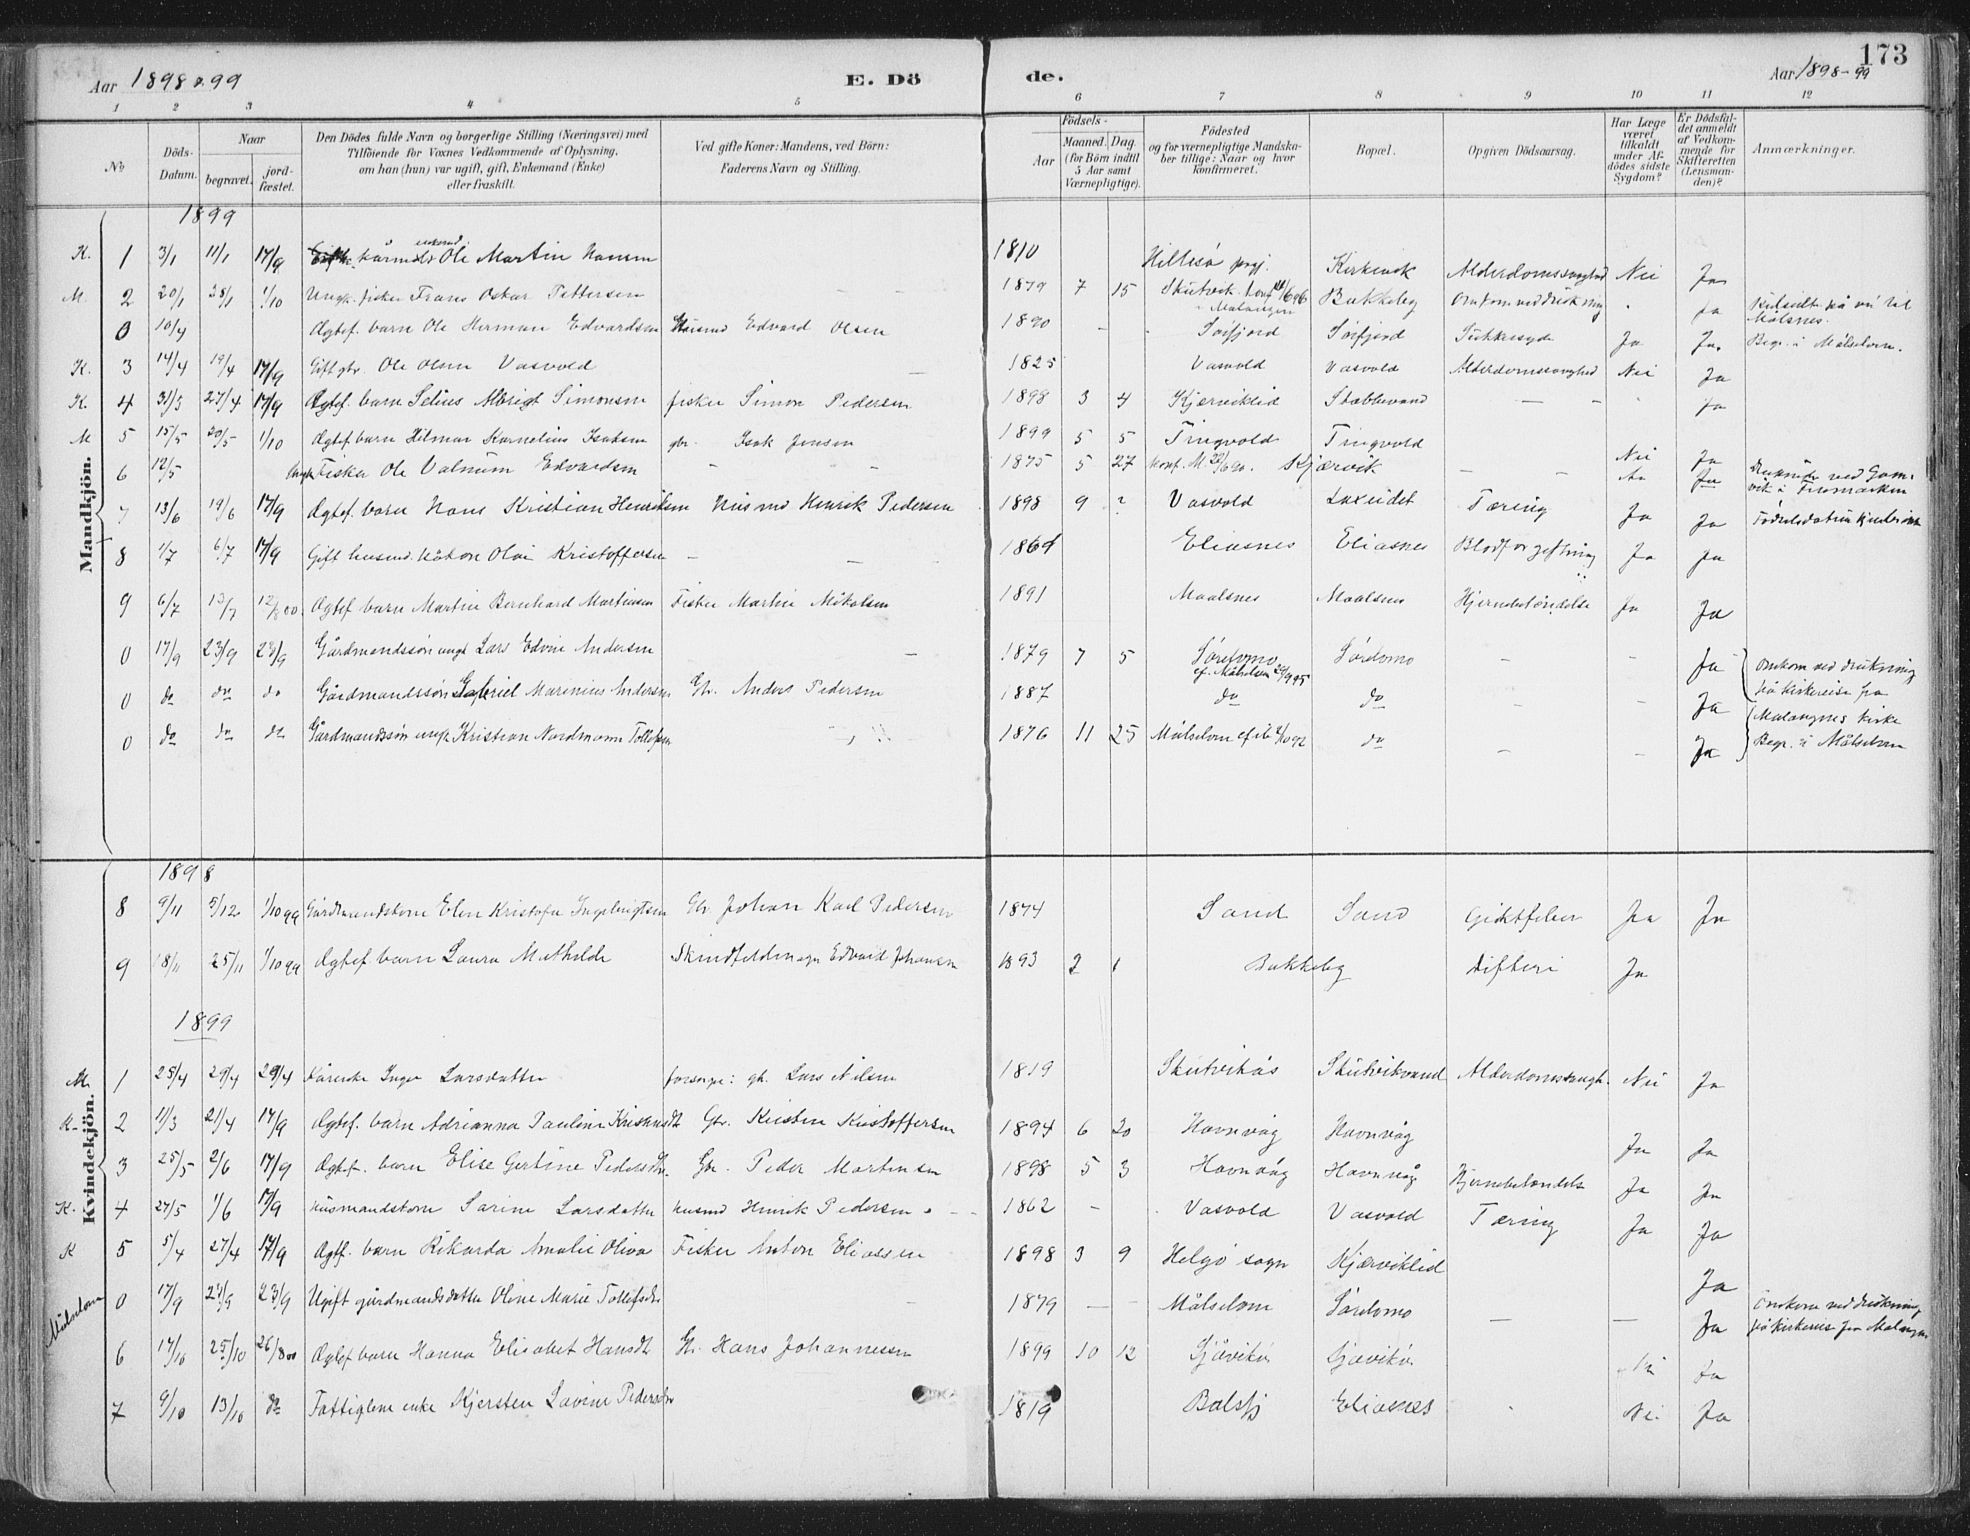 173
Aar 1898 & 99 E. Dö de. Aar 1898-99
1 2 3 4 5 6 7 8 9 10 11 12
No
Döds-Datum.
Naar
begravet.
jord-fæstet.
Den Dödes fulde Navn og borgerlige Stilling (Næringsvei) med
Tilföiende for Voxnes Vedkommende af Oplysning,
om han (hun) var ugift, gift, Enkemand (Enke)
eller fraskilt.
Ved gifte Koner: Mandens, ved Börn:
Faderens Navn og Stilling.
Födsels-
Aar
Maaned. Dag.
(for Börn indtil
5 Aar samt
Værnepligtige).
Födested
og for værnepligtige Mandska-
ber tillige: Naar og hvor
konfirmeret.
Bopæl.
Opgiven Dödsaarsag.
Har Læge
været
tilkaldt
under Af-
dödes sidste
Sygdom?
Er Dödsfal-
det anmeldt
af Vedkom-
mende for
Skifteretten
(Lensman-
den)?
Anmærkninger.
Mandkjön.
1899
K. 1 3/1 11/1 17/9 Ole Martin Hansen 1810 Hillesø prgj. Kirkevik Alderdomssvaghed Nei Ja
M. 2 20/1 28/1 1/10 Ungk. fisker Frans Oskar Pettersen - - 1879 7 15 Skutvik. konf i Malangen Bakkeby Omkom ved drukning " Ja Målsnes.
0 10/4 Ægtef. barn Ole Herman Edvardsen Husmd Edvard Olsen 1890 - - Sørfjord Sørfjord Ja Ja. Begr. i Målselven.
K. 3 14/4 19/4 17/9 Gift gbr. Ole Olsen Vasvold - 1825 Vasvold Vasvold Alderdomssvaghed Nei Ja
K. 4 31/3 27/4 17/9 Ægtef. barn Selius Albrigt Simonsen fisker Simon Pedersen 1898 3 4 Kjærviklid Stabbevand - - Ja
M 5 15/5 20/5 1/10 Ægtef barn Hilmar Kornelius Isaksen gbr. Isak Jensen 1899 5 5 Tingvold Tingvold Nei Ja
6 12/5 Ungk Fisker Ole Valnum Edvardsen - - 1875 5 27 konf. M. Kjærvik - - Ja druknede ved Gam-vik i Finmarken
7 13/6 19/6 17/9 Ægtef. barn Hans Kristian Henriksen Husmd Henrik Pedersen 1898 9 ? Vasvold Laxeidet Tæring Ja Ja
8 1/7 6/7 17/9 Gift husmd. Håkon Olai Kristoffersen - - Eliasnes Eliasnes Blodforgiftning Ja Ja
9 6/7 13/7 Ægtef barn Martin Bernhard Martinsen Fisker Martin Nikolsen 1891 Maalsnes Maalsnes Hjernebetændelse Ja Ja
0 17/9 23/9 23/9 Gårdmandssøn ungk Lars Edvin Andersen - 1879 7 5 Sørelvmo Sørelvmo - Ja Omkom ved drukning
0 do do do Gårdmandssøn Gabriel Marinius Andersen Gbr. Anders Pedersen 1887 do do - - Ja på Kirkereise fra
0 do do do Gårdmandssøn ungk Kristian Nordmann Tollefsen 1876 11 25 Målselven do - - Ja Malangnes kirke
Begr. i Målselven
Kvindekjön.
1898
8 9/11 5/12 1/10 99 Gårdmandskone Elen Kristofa Ingebrigtsen Gbr Johan Karl Pedersen 1874 Sand Sand Giktfeber Ja Ja
9 18/11 25/11 1/10 99 Ægtef. barn Laura Mathilde Edvard Johansen 1893 2 1 Bakkeby Difteri Ja
1899
M. 1 25/4 29/4 29/4 Inger Larsdatter forsørger: gb. Lars Nilsen 1819 Skutvikås Skutvikvand Alderdomssvagh. Nei Ja
K. 2 11/3 21/4 17/9 Ægtef. barn Adrianna Pauline Gbr. Kristen Kristoffersen 1894 6 20 Havnvåg Havnvåg Ja Ja
3 25/5 2/6 17/9 Ægtef. barn Elise Gertine Pedersdtr. Gbr. Peder Martinsen 1898 5 3 Havnvåg Havnvåg Hjernebetændelse Ja Ja
K. 4 27/5 1/6 17/9 Husmandskone Sarine Larsdatter husmd Henrik Pedersen 1862 - Vasvold Vasvold Tæring Ja Ja
K 5 5/4 27/4 17/9 Ægtf. barn Rikarda Amalie Oliva Fisker Anton Eliassen 1898 3 9 Helgø sogn Kjærviklid Ja
Målselven 0 17/9 23/9 23/9 Ugift gårdmandsdatter Oline Marie Tollefsdtr - 1879 - - Målselven Sørelvmo - - Ja Omkom ved drukning
på Kirkereise fra Malangen
6 17/10 25/10 Ægtef barn Hanna Elisabet Hansdtr Gbr. Hans Johannessen 1899 10 12 Sjåvikør Sjåvikør Nei Ja
7 9/10 13/10 do Fattiglem enke Kjersten Lavine Pedersdtr 1819 Balsfj Eliasnes Nei Ja